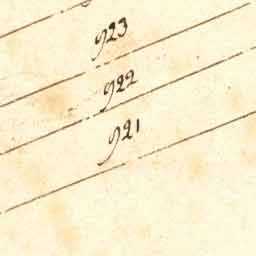 923
922
921